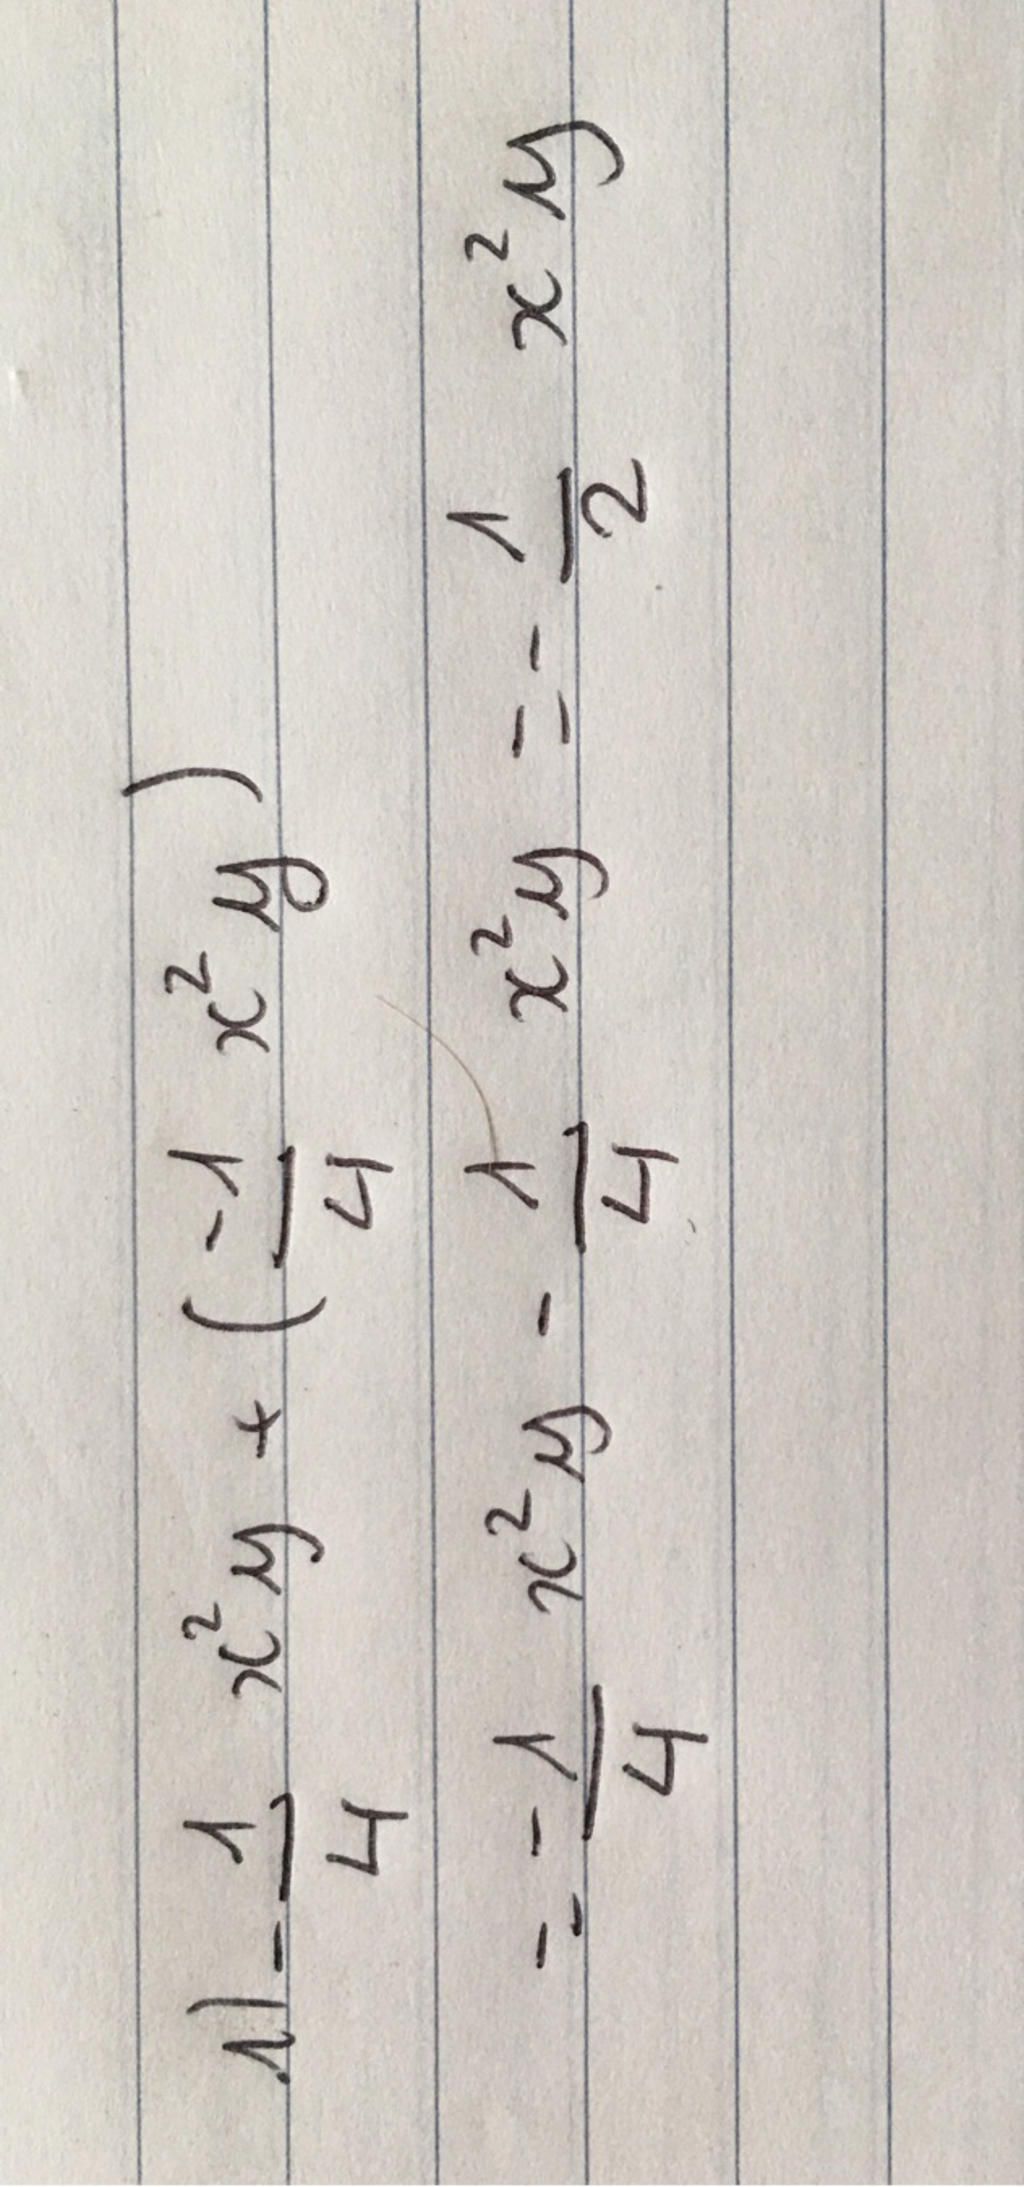 1) - 1/4 x²y + (-1/4 x²y)
= - 1/4 x²y - 1/4 x²y = - 1/2 x²y